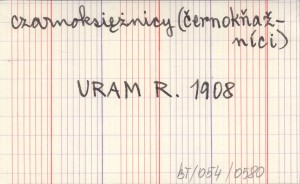 czarnoksiężnicy (černokňaž-
níci)
VRAM R. 1908
BT/054/0580